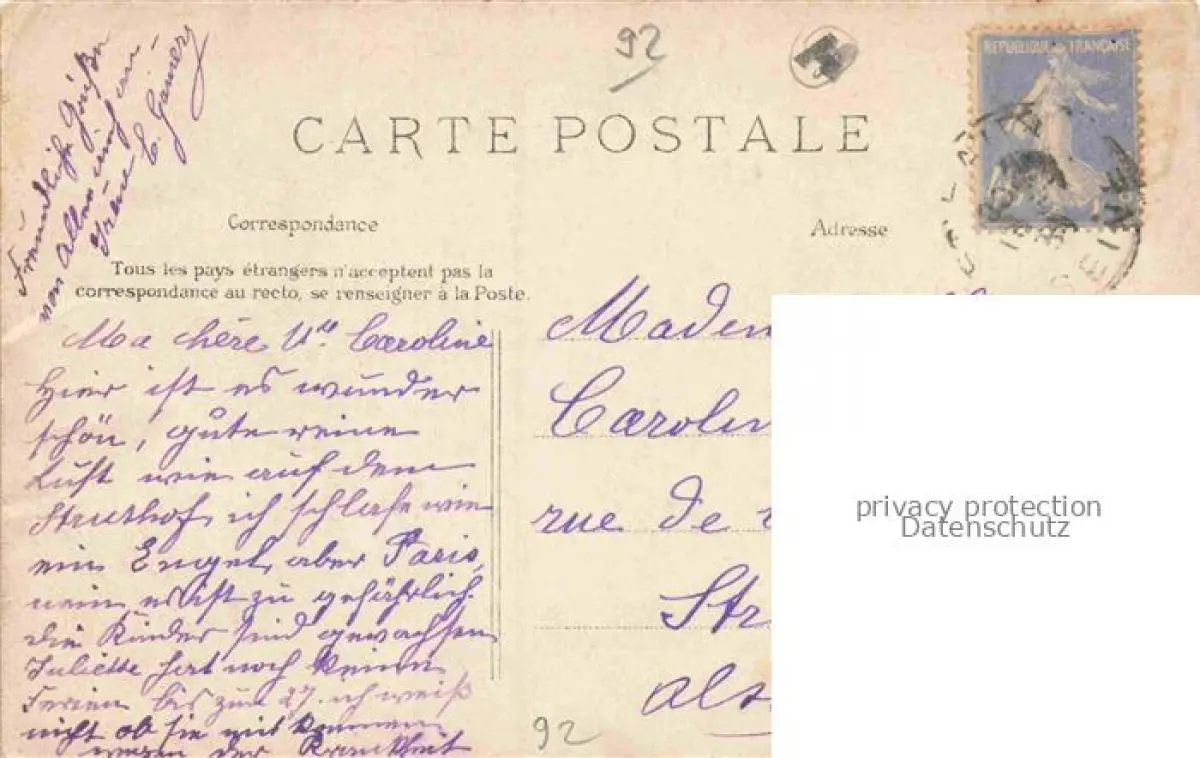 92
REPUBLIQUE FRANÇAISE
CARTE POSTALE
Correspondance
Adresse
Tous les pays étrangers n'acceptent pas la
correspondance au recto, se renseigner à la Poste.
von Allen
Irène
Ma chère Caroline
Hier ist es wunder
schön, gute reine
Luft wie auf dem
Struthof, ich schlafe wie
ein Engel, aber Paris,
nein es ist zu gefährlich.
die Kinder sind gewachsen
Juliette hat noch keine
Ferien bis zum 27. ich weiß
nicht ob sie mit kommen
wegen der Krankheit
Madem
Carolin
rue de
Str
als
privacy protection
Datenschutz
92